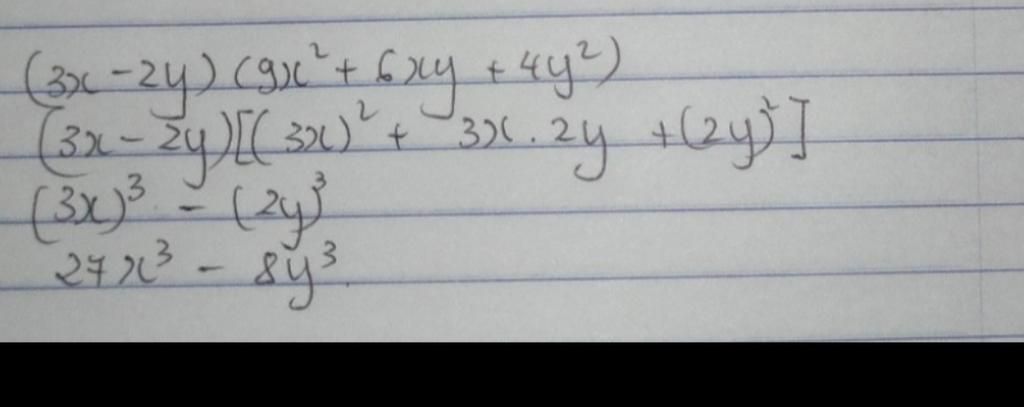 (3x - 2y) (9x² + 6xy + 4y²)
(3x - 2y)[(3x)² + 3x . 2y + (2y)²]
(3x)³ - (2y)³
27x³ - 8y³.